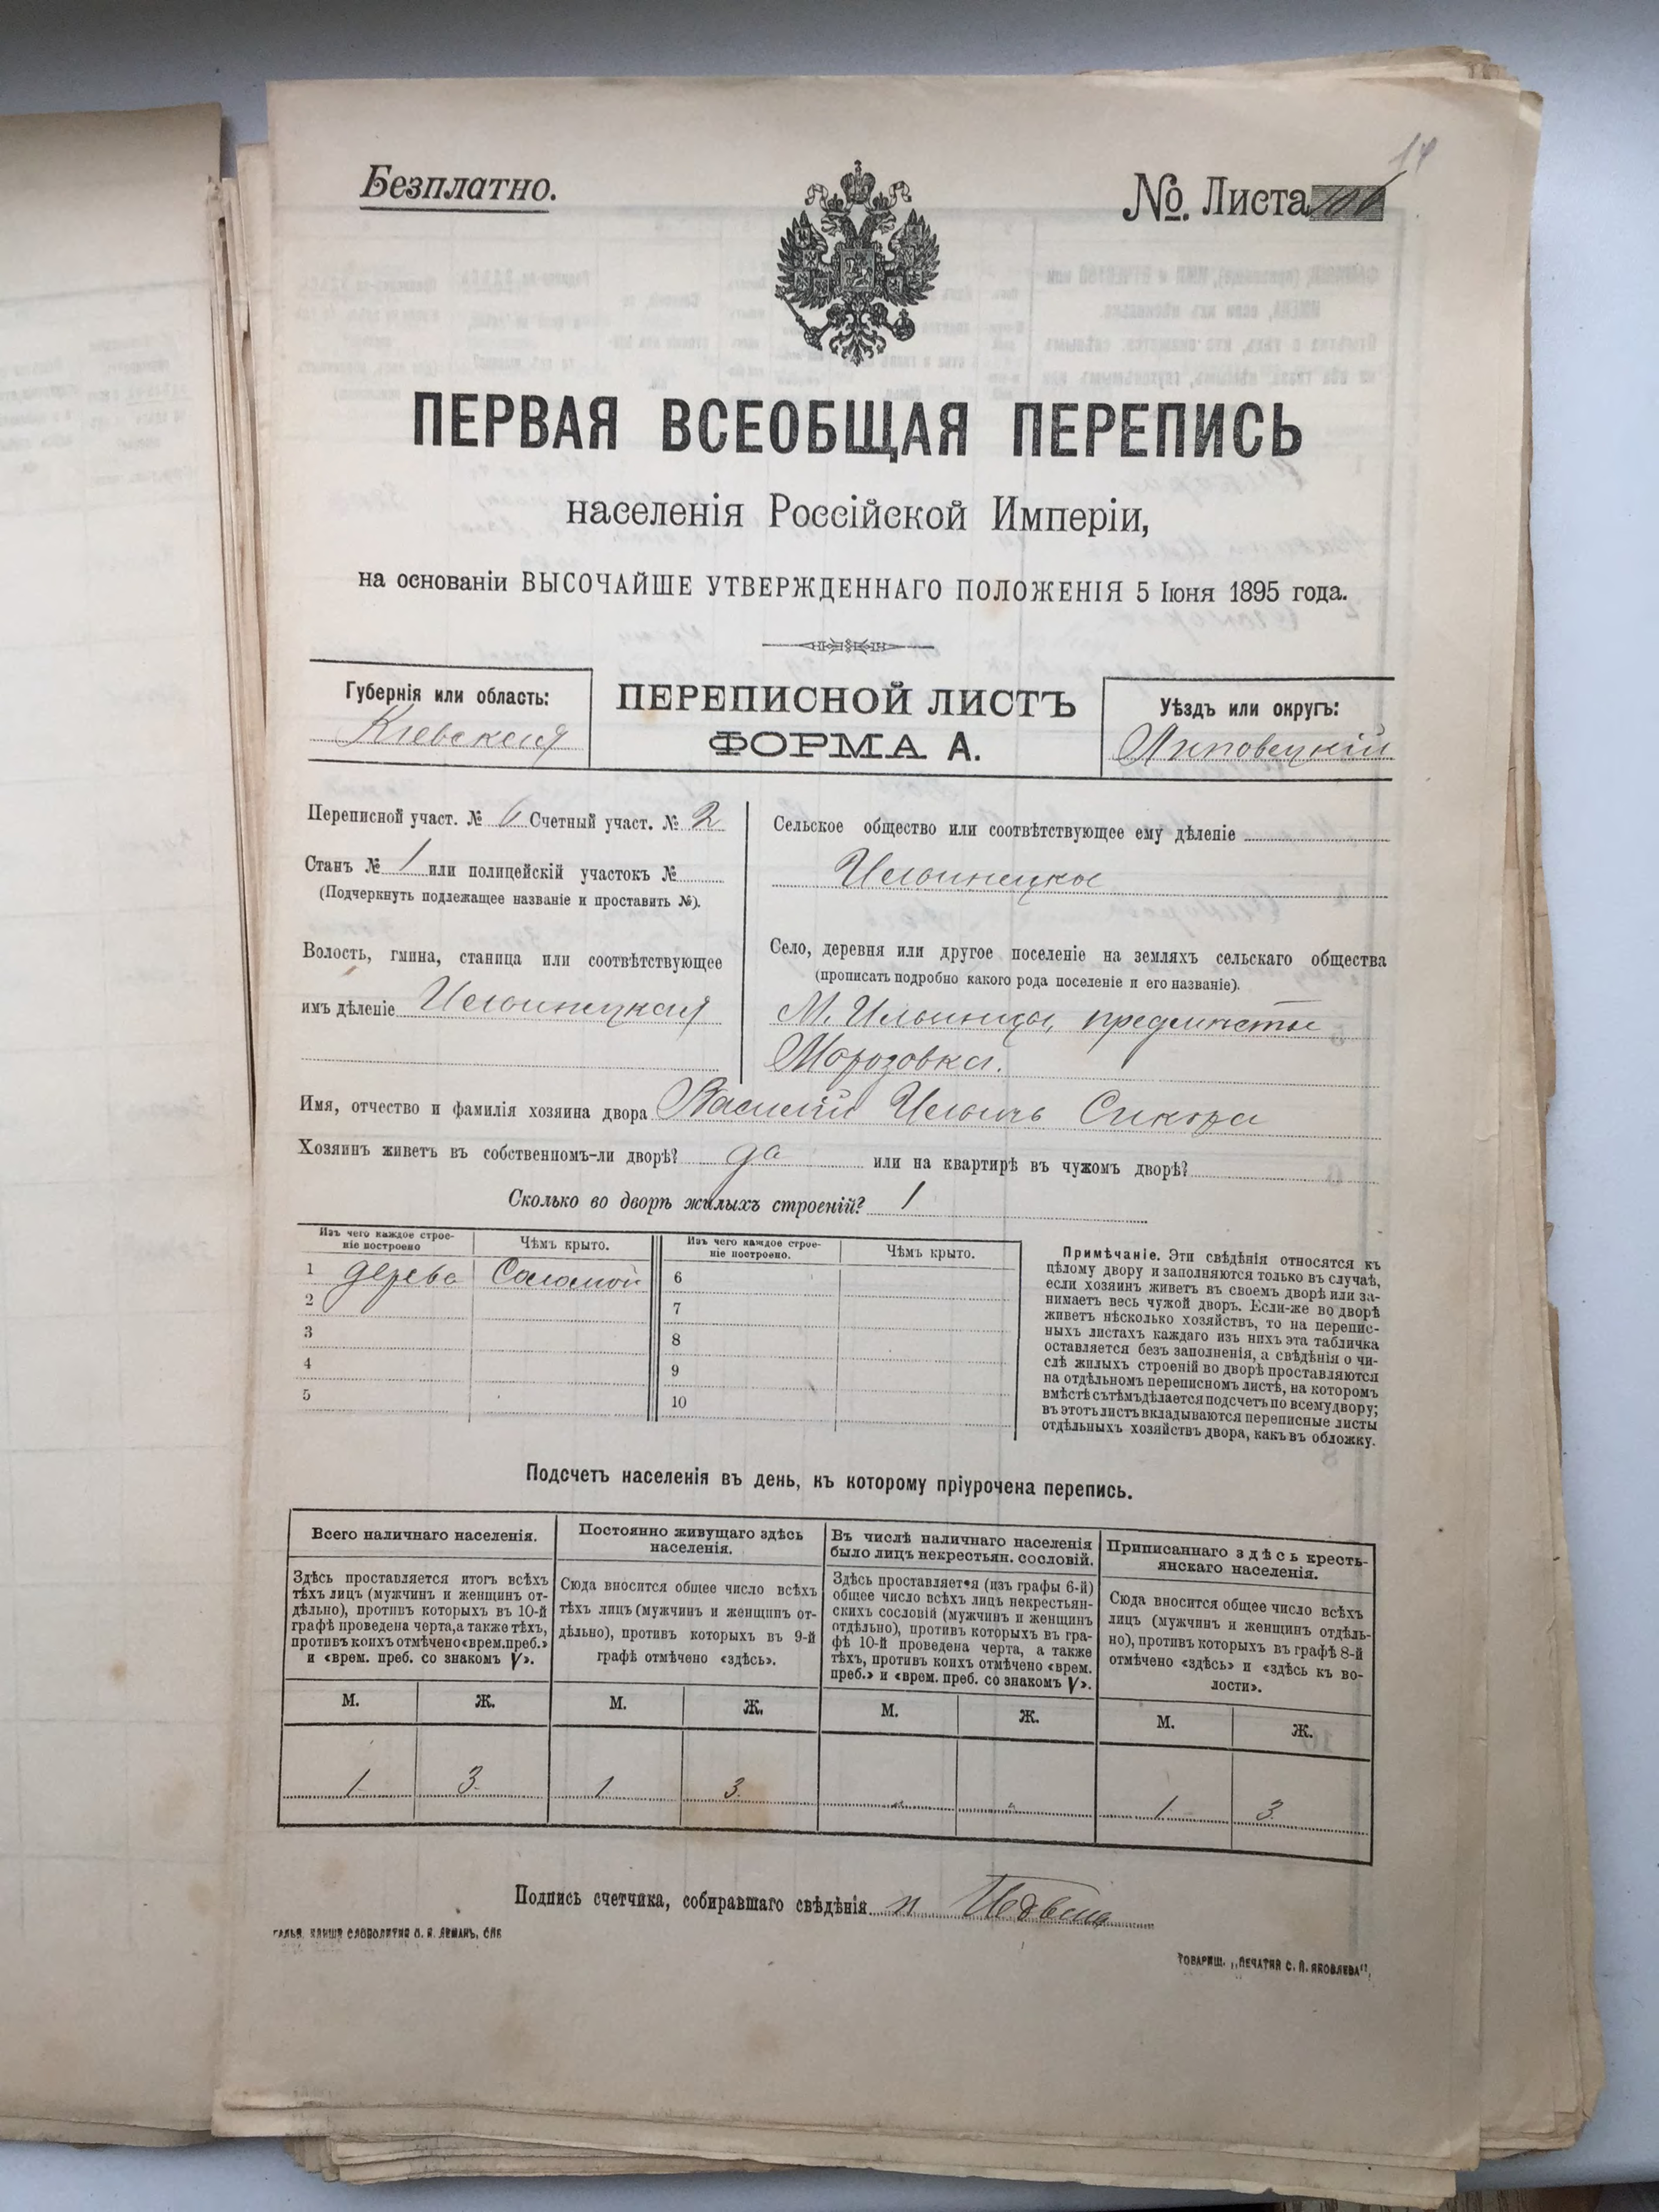 14
Безплатно.
№. Листа 106
ПЕРВАЯ ВСЕОБЩАЯ ПЕРЕПИСЬ
населенія Россійской Имперіи,
на основаніи ВЫСОЧАЙШЕ УТВЕРЖДЕННАГО ПОЛОЖЕНІЯ 5 Іюня 1895 года.
Губернія или область:
Кіевская
ПЕРЕПИСНОЙ ЛИСТЪ
ФОРМА А.
Уѣздъ или округъ:
Липовецкій
Переписной участ. № 6 Счетный участ. № 2
Станъ № 1 или полицейскій участокъ №
(Подчеркнуть подлежащее названіе и проставить №).
Волость, гмина, станица или соотвѣтствующее
имъ дѣленіе Ильинецкая
Сельское общество или соотвѣтствующее ему дѣленіе
Ильинецкое
Село, деревня или другое поселеніе на земляхъ сельскаго общества
(прописать подробно какого рода поселеніе и его названіе).
М. Ильинцы, предмѣстье
Морозовка.
Имя, отчество и фамилія хозяина двора Василій Ильичъ Сикора
Хозяинъ живетъ въ собственномъ-ли дворѣ? да или на квартирѣ въ чужомъ дворѣ?
Сколько во дворѣ жилыхъ строеній? 1
Изъ чего каждое строе-
ніе построено
Чѣмъ крыто.
Изъ чего каждое строе-
ніе построено.
Чѣмъ крыто.
1 дерева Соломой 6
2 7
3 8
4 9
5 10
Примѣчаніе. Эти свѣдѣнія относятся къ
цѣлому двору и заполняются только въ случаѣ,
если хозяинъ живетъ въ своемъ дворѣ или за-
нимаетъ весь чужой дворъ. Если-же во дворѣ
живетъ нѣсколько хозяйствъ, то на перепис-
ныхъ листахъ каждаго изъ нихъ эта табличка
оставляется безъ заполненія, а свѣдѣнія о чи-
слѣ жилыхъ строеній во дворѣ проставляются
на отдѣльномъ переписномъ листѣ, на которомъ
вмѣстѣ съ тѣмъ дѣлается подсчетъ по всему двору;
въ этотъ листъ вкладываются переписные листы
отдѣльныхъ хозяйствъ двора, какъ въ обложку.
Подсчетъ населенія въ день, къ которому пріурочена перепись.
Всего наличнаго населенія.
Здѣсь проставляется итогъ всѣхъ
тѣхъ лицъ (мужчинъ и женщинъ от-
дѣльно), противъ которыхъ въ 10-й
графѣ проведена черта, а также тѣхъ,
противъ коихъ отмѣчено «врем. преб.»
и «врем. преб. со знакомъ V».
Постоянно живущаго здѣсь
населенія.
Сюда вносится общее число всѣхъ
тѣхъ лицъ (мужчинъ и женщинъ от-
дѣльно), противъ которыхъ въ 9-й
графѣ отмѣчено «здѣсь».
Въ числѣ наличнаго населенія
было лицъ некрестьян. сословій.
Здѣсь проставляется (изъ графы 6-й)
общее число всѣхъ лицъ некрестьян-
скихъ сословій (мужчинъ и женщинъ
отдѣльно), противъ которыхъ въ гра-
фѣ 10-й проведена черта, а также
тѣхъ, противъ коихъ отмѣчено «врем.
преб.» и «врем. преб. со знакомъ V».
Приписаннаго здѣсь кресть-
янскаго населенія.
Сюда вносится общее число всѣхъ
лицъ (мужчинъ и женщинъ отдѣль-
но), противъ которыхъ въ графѣ 8-й
отмѣчено «здѣсь» и «здѣсь къ во-
лости».
М. Ж. М. Ж. М. Ж. М. Ж.
1 3. 1 3. „ „ 1 3.
Подпись счетчика, собиравшаго свѣдѣнія
ГАЛЬВ. КЛИШЕ СЛОВОЛИТНЯ О. И. ЛЕМАНЪ, СПБ
ТОВАРИЩ. „ПЕЧАТНЯ С. П. ЯКОВЛЕВА",